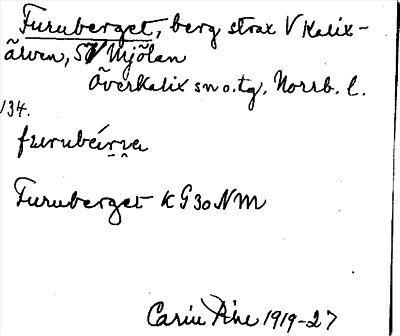 Furuberget, berg strax V Kalix-
älven, SV Mjölan
Överkalix sn o. tg, Norrb. l.
134.
Furuberget KG30NM
Carin Pihe 1919-27